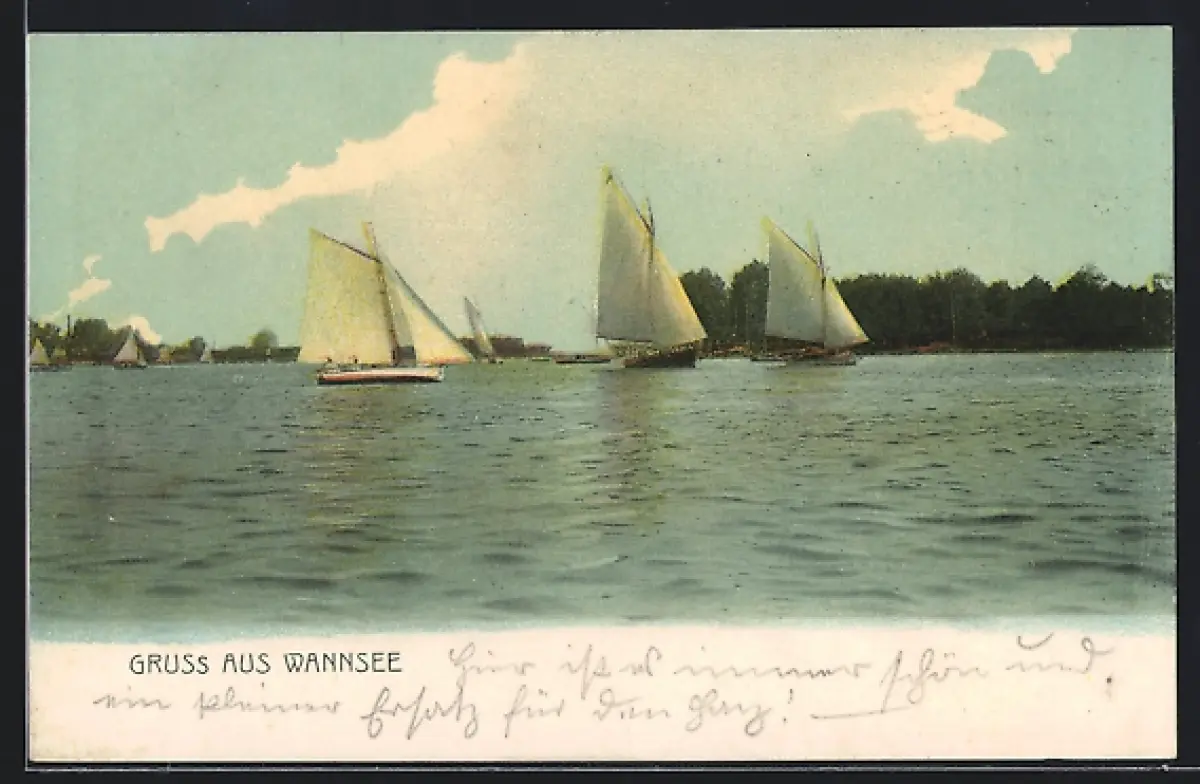 GRUSS AUS WANNSEE Hier ist es immer schön und
ein kleiner Ersatz für den Harz! —